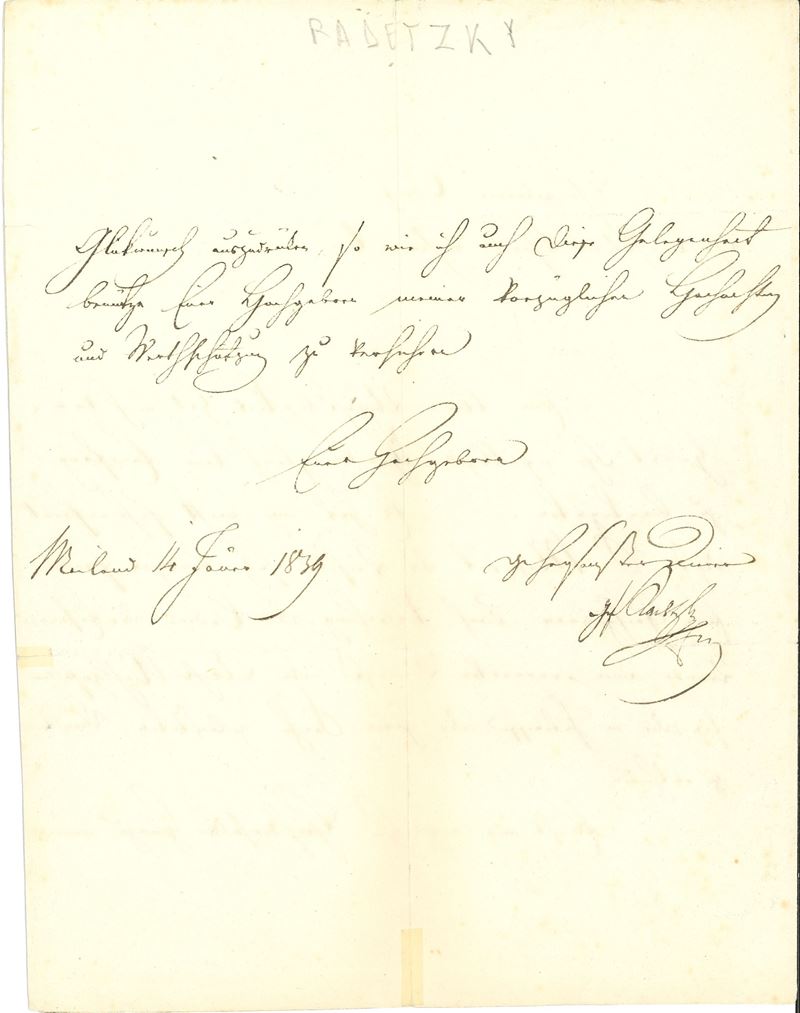 RADETZKY
Glückwunsch auszudrücken, so wie ich auch diese Gelegenheit
benütze Euer Hochgeboren meiner vorzüglichen Hochachtung
und Werthschätzung zu versichern
Euer Hochgeboren
Mailand 14 Jäner 1839
gehorsamster Diener
Gf Radetzky